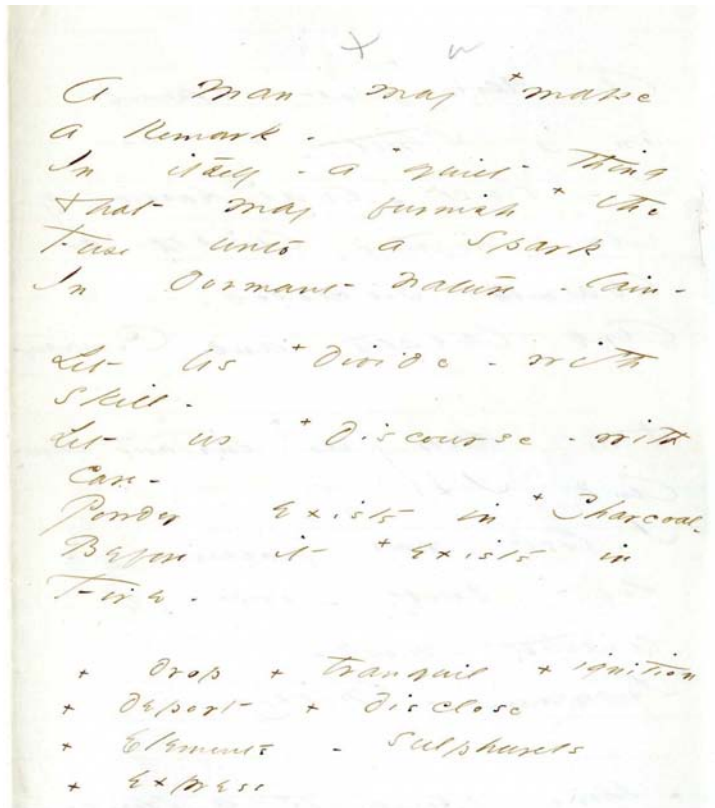 x w
A Man may +make
a Remark -
In itself - a +quiet - thing
that may furnish +the
Fuse unto a Spark
In Dormant - nature - lain -
Let us +divide - with
skill -
Let us +discourse - with
care -
Powder exists in +Charcoal -
Before it +exists in
Fire -
+ drop + tranquil + ignition
+ deport - + disclose
+ Elements - sulphurets
+ express